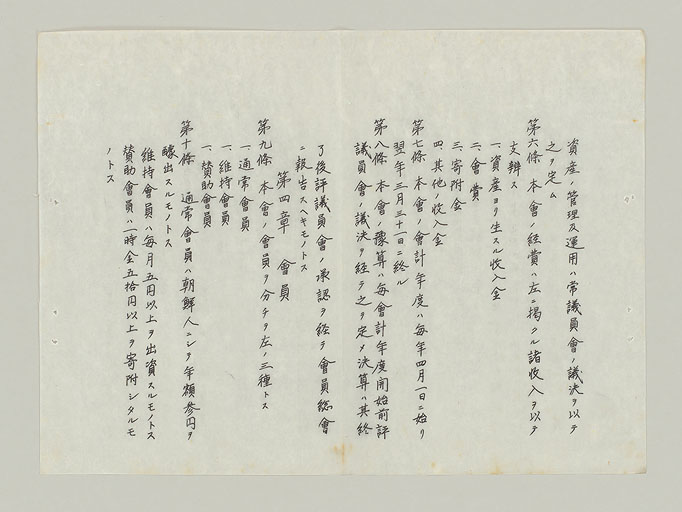 資産ノ管理及運用ハ常議員會ノ議決ヲ以テ
之ヲ定ム
第六條 本會ノ経費ハ左ニ掲クル諸收入ヲ以テ
支辨ス
一、資産ヨリ生スル收入金
二、會費
三、寄附金
四、其他ノ收入金
第七條 本會ノ會計年度ハ毎年四月一日ニ始リ
翌年三月三十一日ニ終ル
第八條 本會ノ豫算ハ毎會計年度開始前評
議員會ノ議決ヲ経テ之ヲ定メ決算ハ其終
了後評議員會ノ承認ヲ経テ會員総會
ニ報告スヘキモノトス
第四章 會員
第九條 本會ノ會員ヲ分チテ左ノ三種トス
一、通常會員
一、維持會員
一、賛助會員
第十條 通常會員ハ朝鮮人ニシテ年額參円ヲ
醵出スルモノトス
維持會員ハ毎月五円以上ヲ出資スルモノトス
賛助會員ハ一時金五拾円以上ヲ寄附シタルモ
ノトス